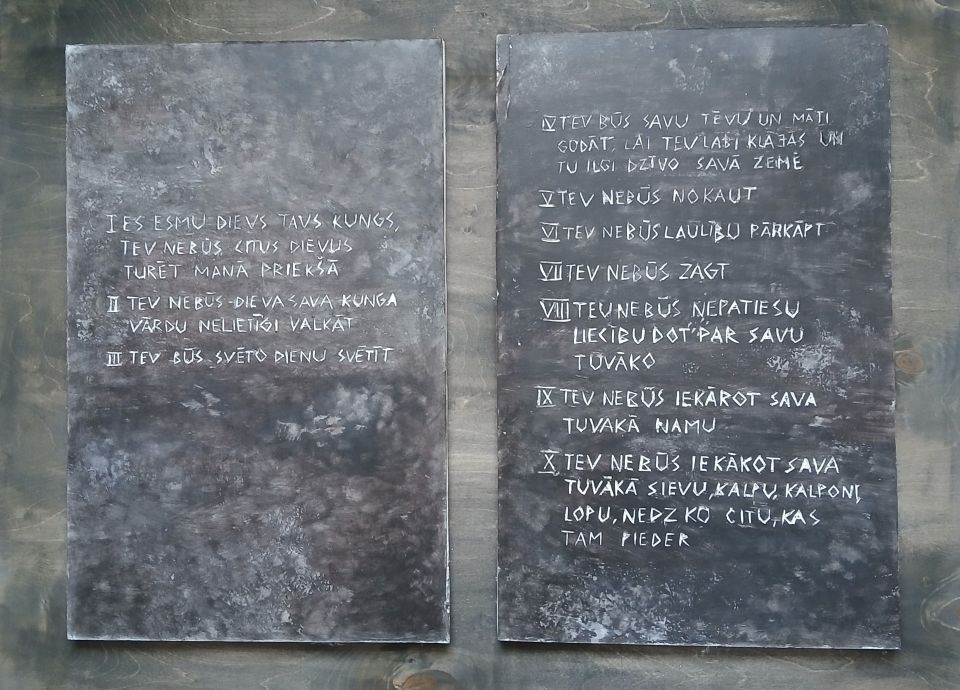 I ES ESMU DIEVS TAVS KUNGS,
TEV NEBŪS CITUS DIEVUS
TURĒT MANĀ PRIEKŠĀ
II TEV NEBŪS DIEVA SAVA KUNGA
VĀRDU NELIETĪGI VALKĀT
III TEV BŪS SVĒTO DIENU SVĒTĪT
IV TEV BŪS SAVU TĒVU UN MĀTI
GODĀT, LAI TEV LABI KLĀJAS UN
TU ILGI DZĪVO SAVĀ ZEMĒ
V TEV NEBŪS NOKAUT
VI TEV NEBŪS LAULĪBU PĀRKĀPT
VII TEV NEBŪS ZAGT
VIII TEV NEBŪS NEPATIESU
LIECĪBU DOT PAR SAVU
TUVĀKO
IX TEV NEBŪS IEKĀROT SAVA
TUVAKĀ NAMU
X TEV NEBŪS IEKĀKOT SAVA
TUVĀKĀ SIEVU, KALPU, KALPONI,
LOPU, NEDZ KO CITU, KAS
TAM PIEDER